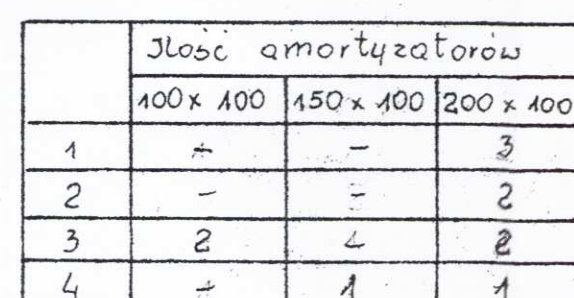 Ilość amortyzatorów
100 x 100 150 x 100 200 x 100
1 - - 3
2 - - 2
3 2 2
4 - 1 1